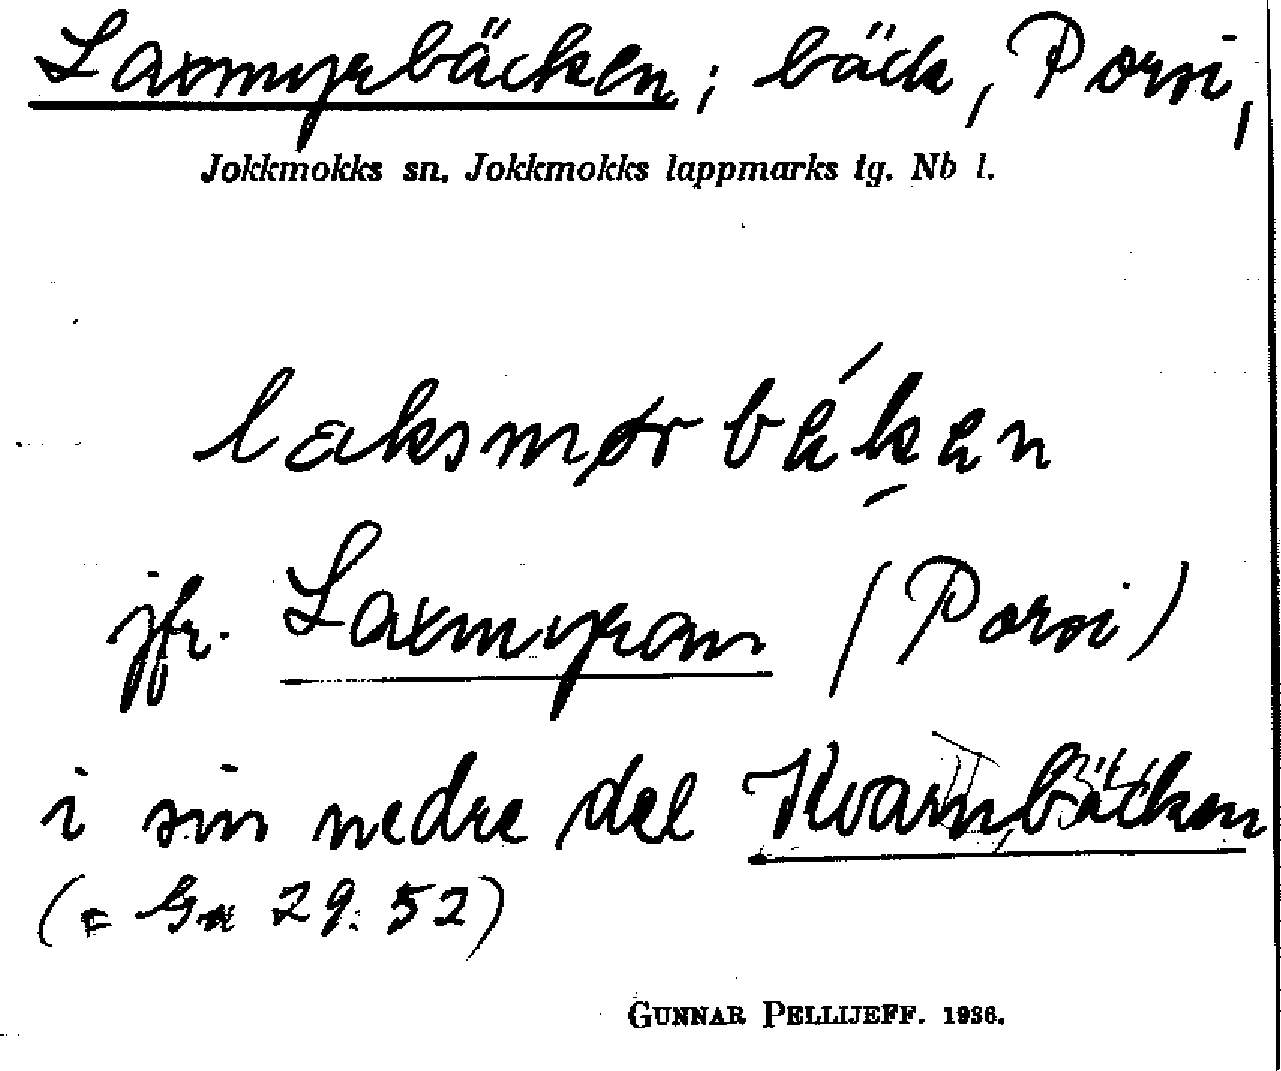 Laxmyrbäcken; bäck, Porsi,
Jokkmokks sn. Jokkmokks lappmarks tg. Nb l.
laksmørbäkän
jfr. Laxmyran (Porsi)
i sin nedre del Kvarnbäcken
(= Gn 29:52)
GUNNAR PELLIJEFF. 1936.